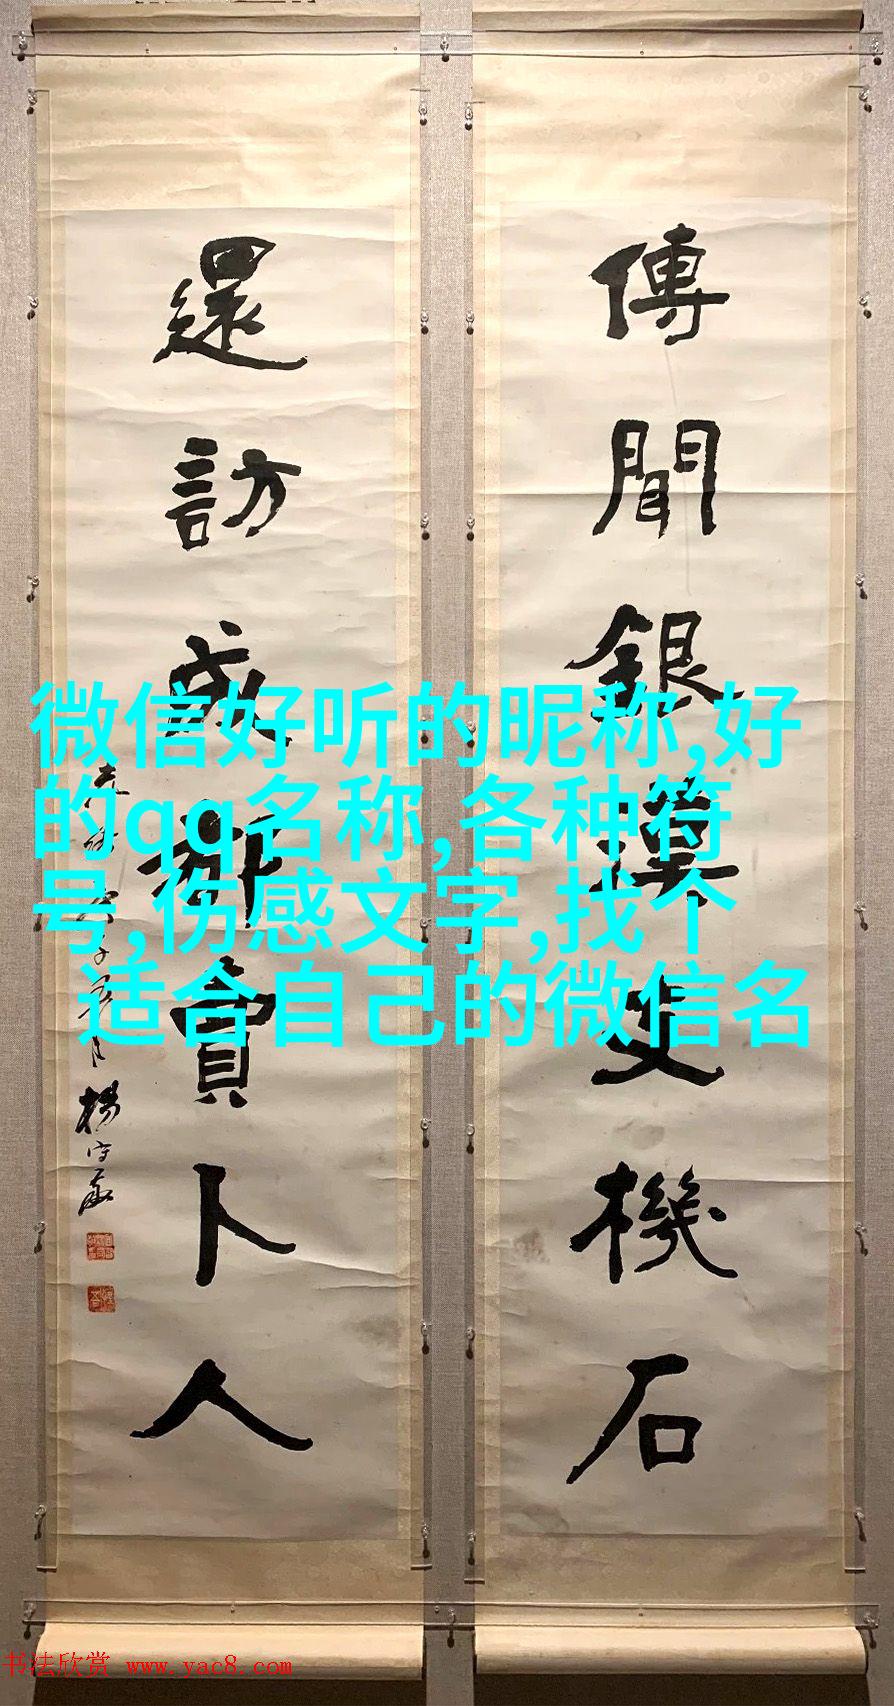 傳聞銀漢支機石
還訪成都賣卜人
楊守敬
微信好听的昵称,好
的qq名称,各种符
号,伤感文字,找个
适合自己的微信名
书法欣赏 www.yac8.com